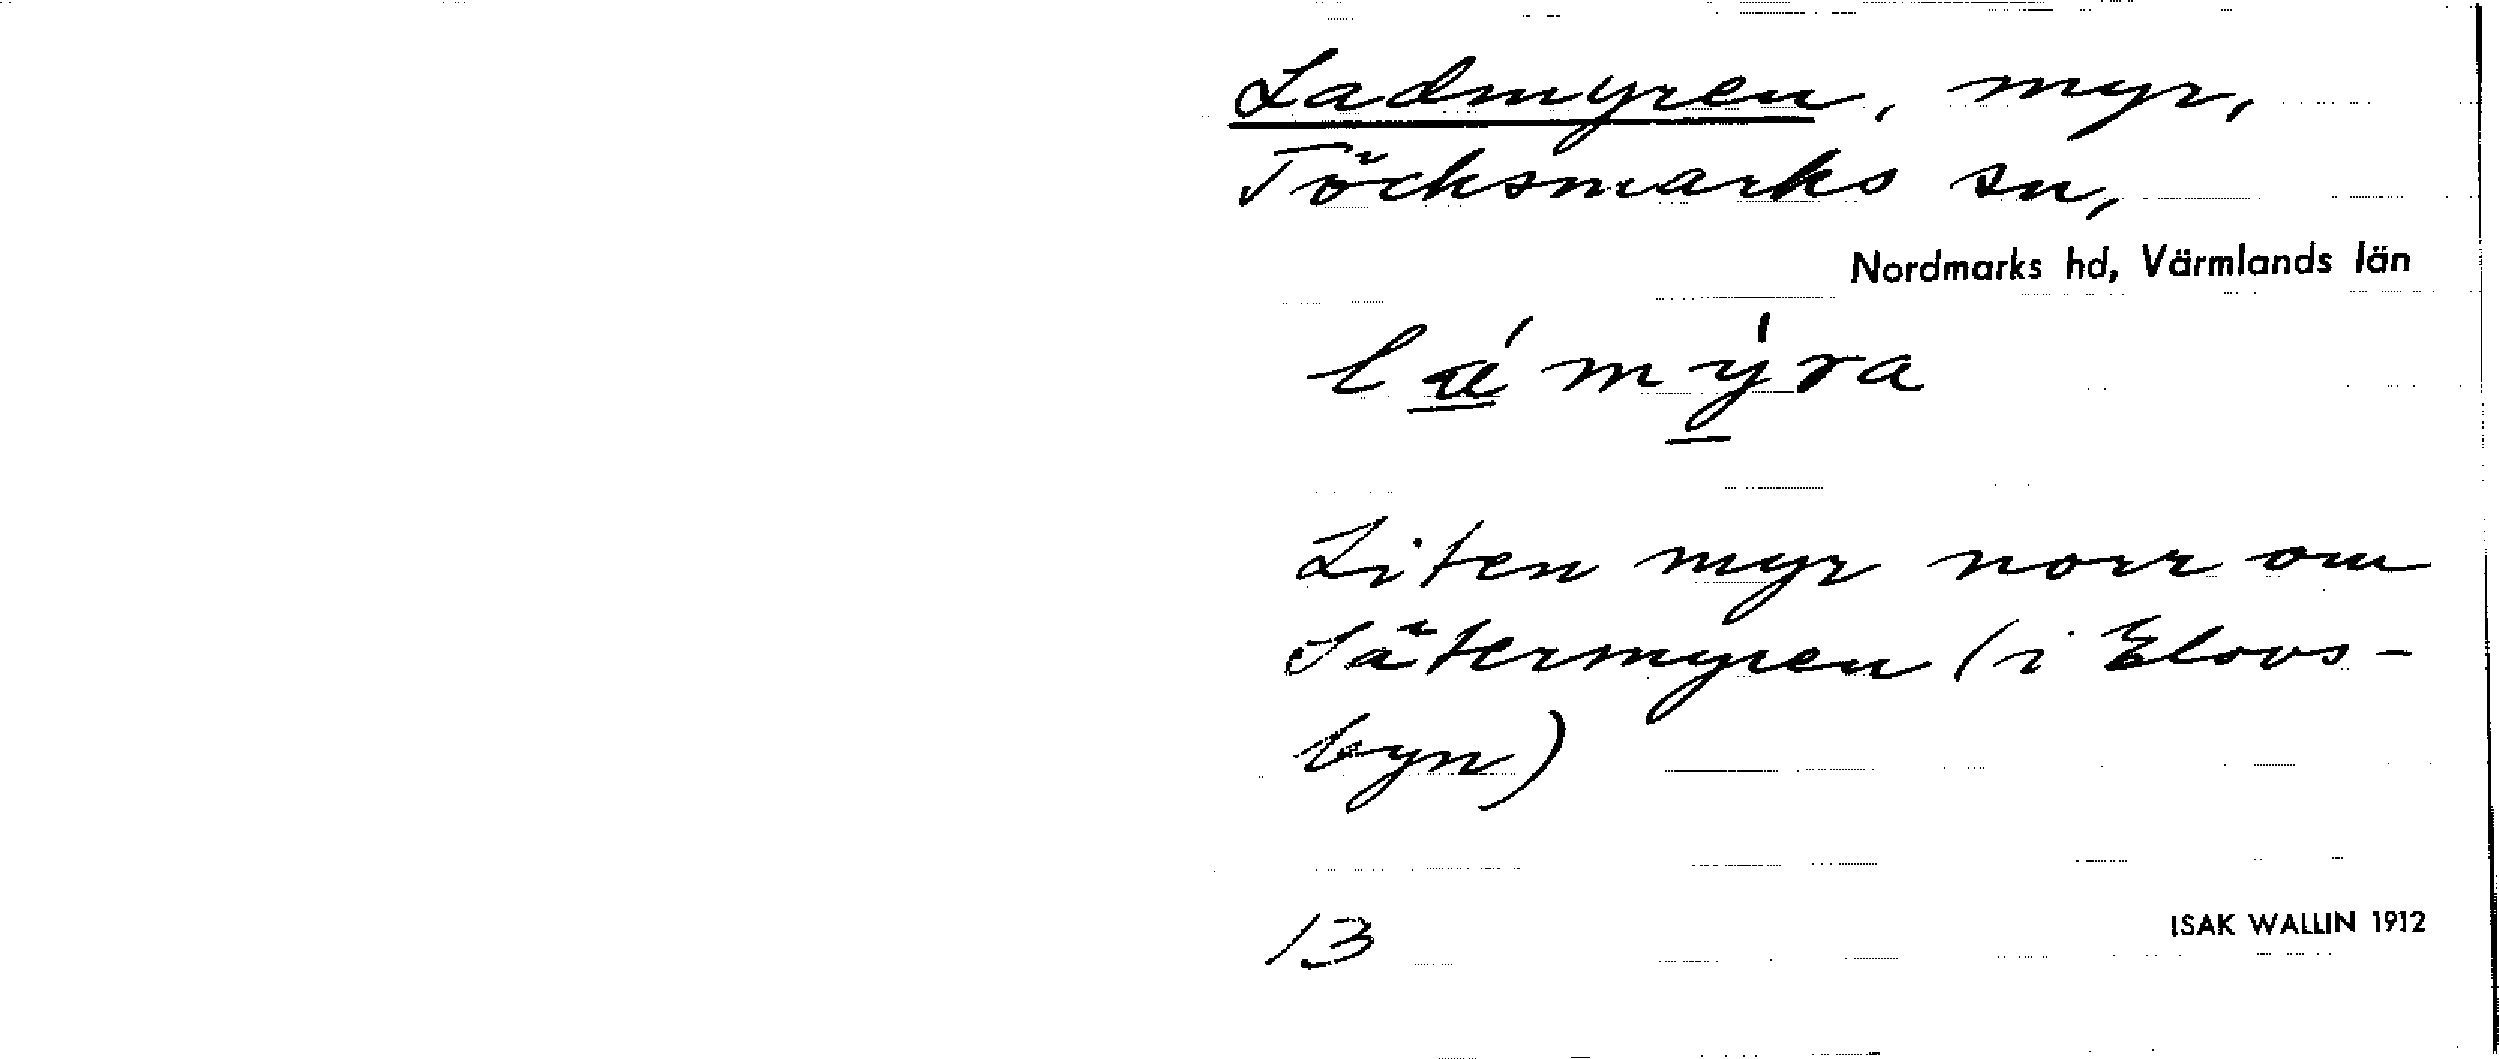 Ladmyren, myr,
Töcksmarks sn,
Nordmarks hd, Värmlands län
lámýra
Liten myr norr om
Sätermyren (i Elovs-
byn)
13
ISAK WALLIN 1912